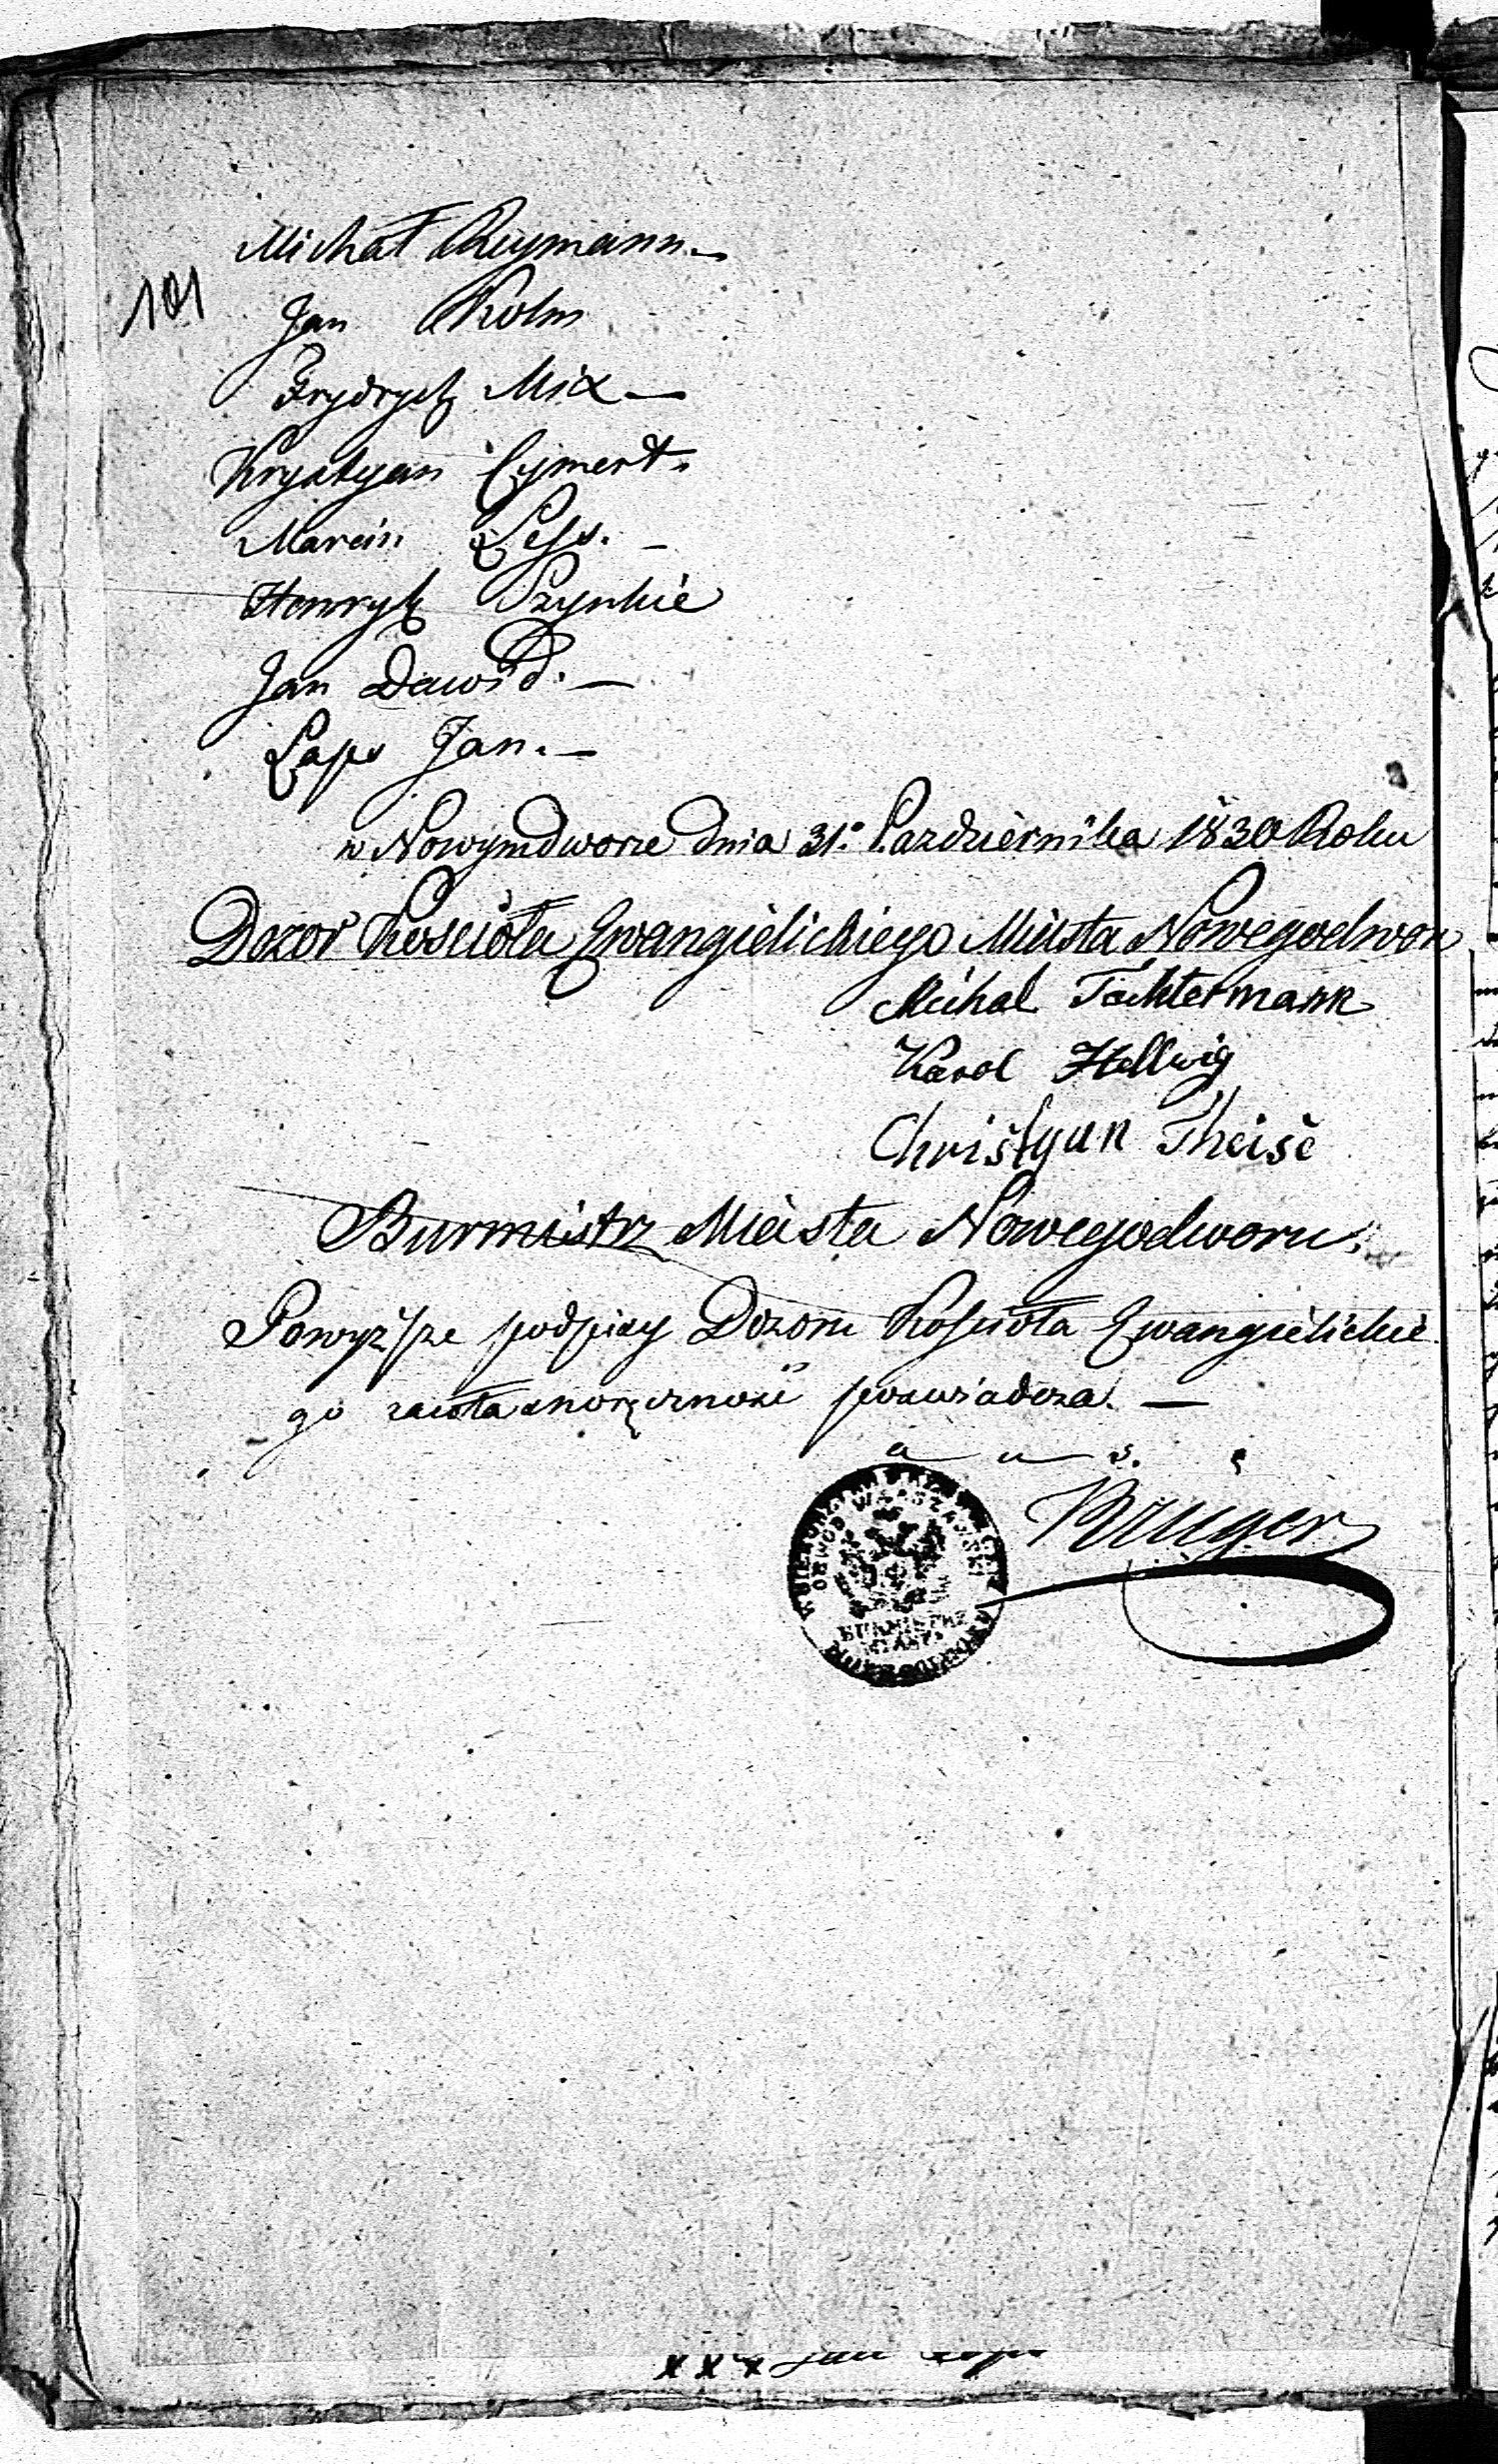 Michał Reymann.
101
Jan Rohn
Frydrych Mix
Krystyan Cyment.
Marcin Less.
Henryk Szynkie
Jan Dawid.
Laps Jan.
w Nowymdworze dnia 31. Pazdziernika 1830 Roku
Dozor Kościoła Ewangielickiego Miasta Nowegodwora
Michal Tochtermann
Karol Hellwig
Christyan Theise
Burmistrz Miasta Nowegodworu.
Powyższe podpisy Dozoru Kościoła Ewangielickie
go za własnoręczność poswiadcza.
Krüger
OBWOD WARSZAWSKI
BURMISTRZ
MIASTA